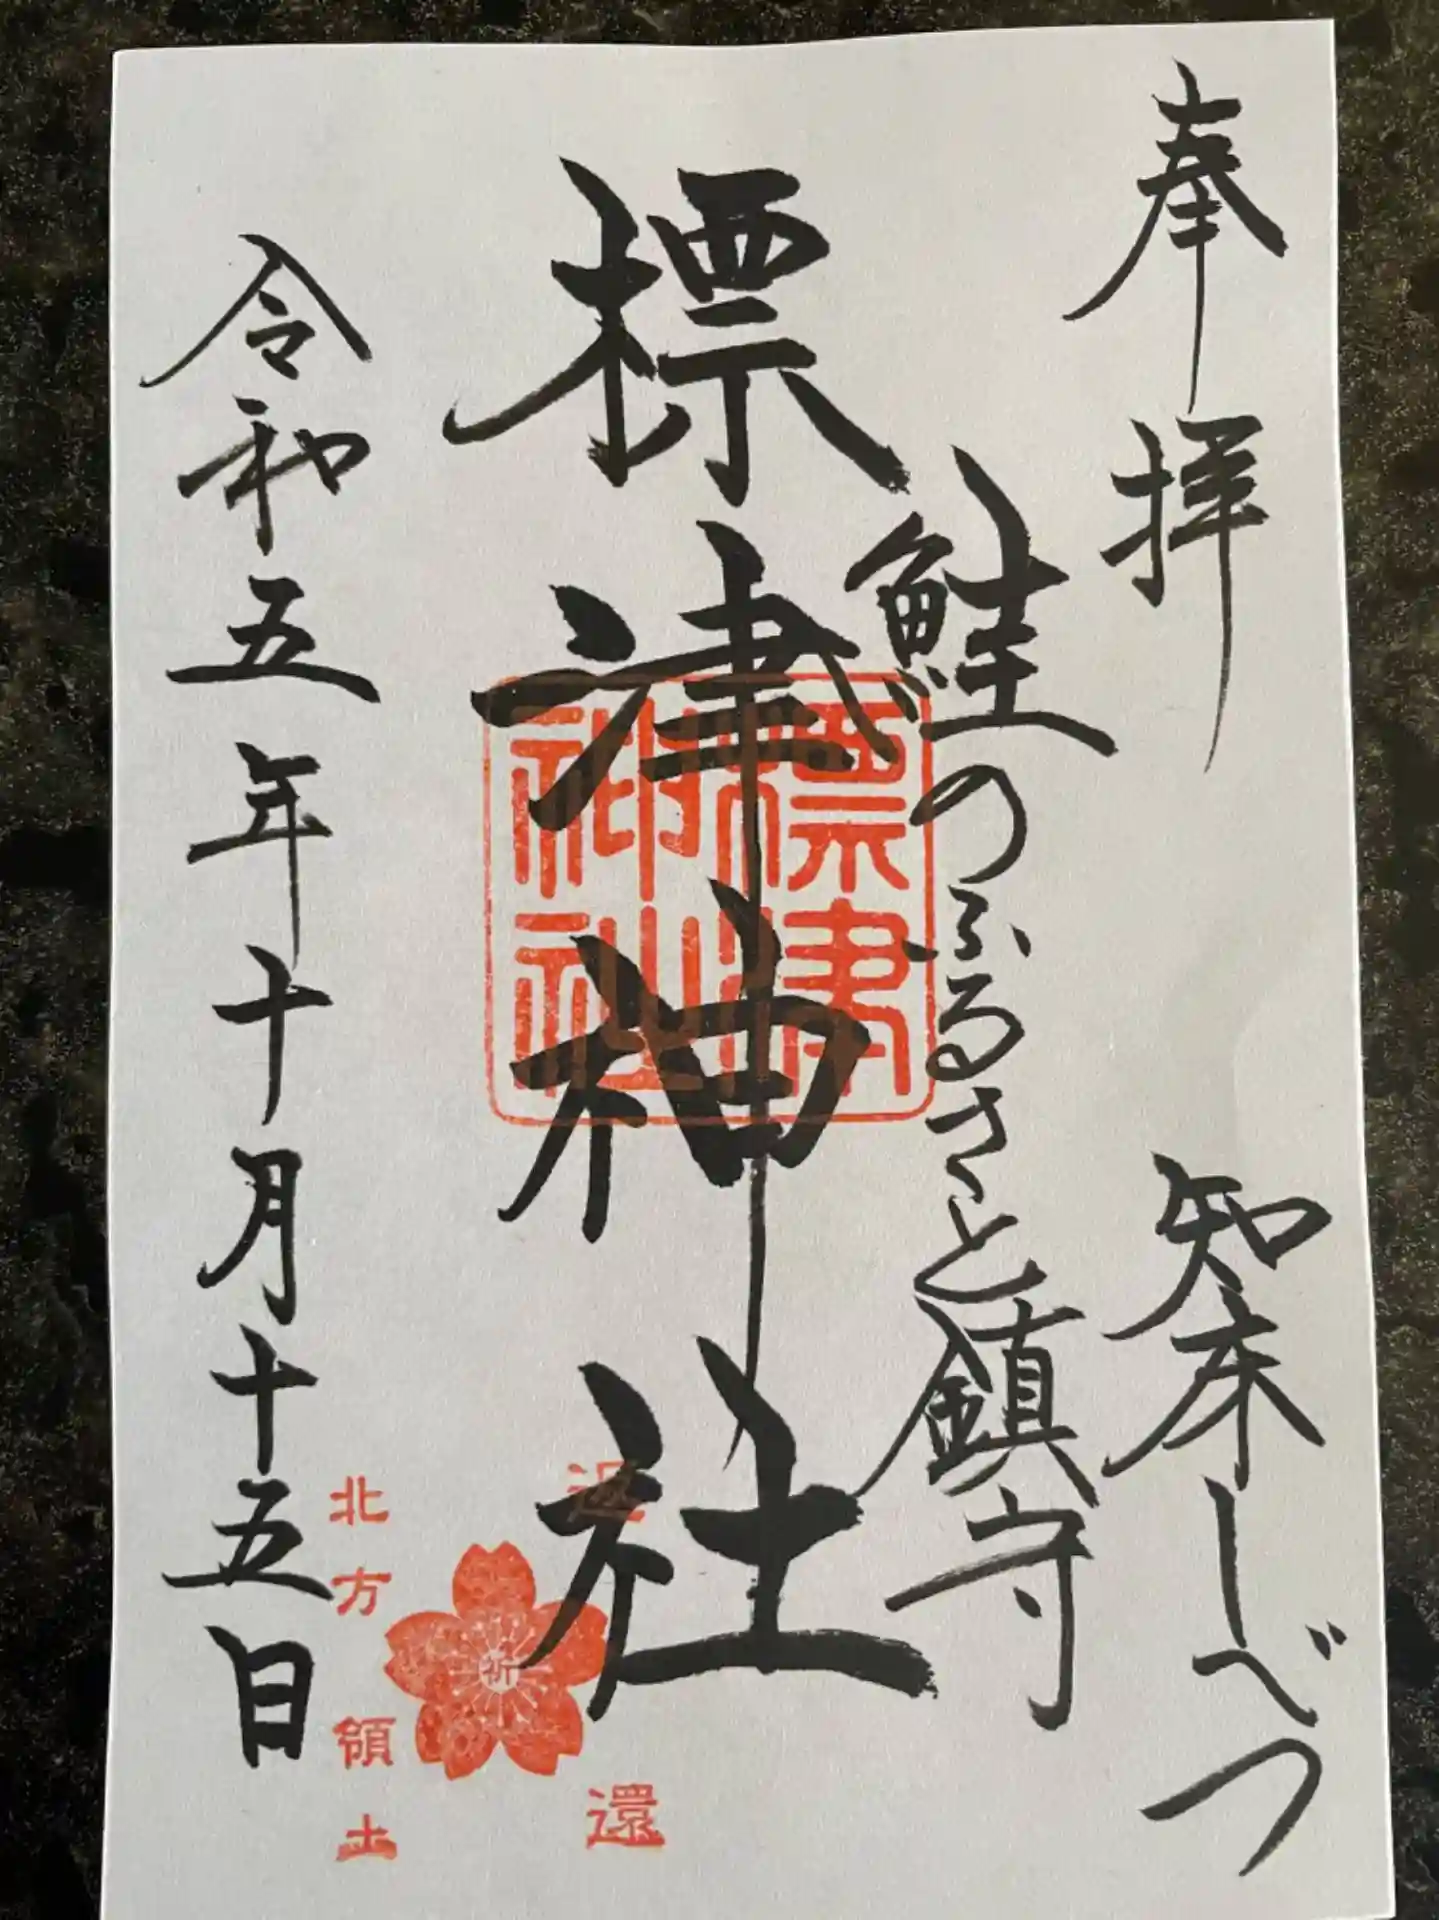 奉拝
知床しべつ
鮭のふるさと鎮守
標津神社
標津
神社
令和五年十月十五日
北方領土
返還
祈